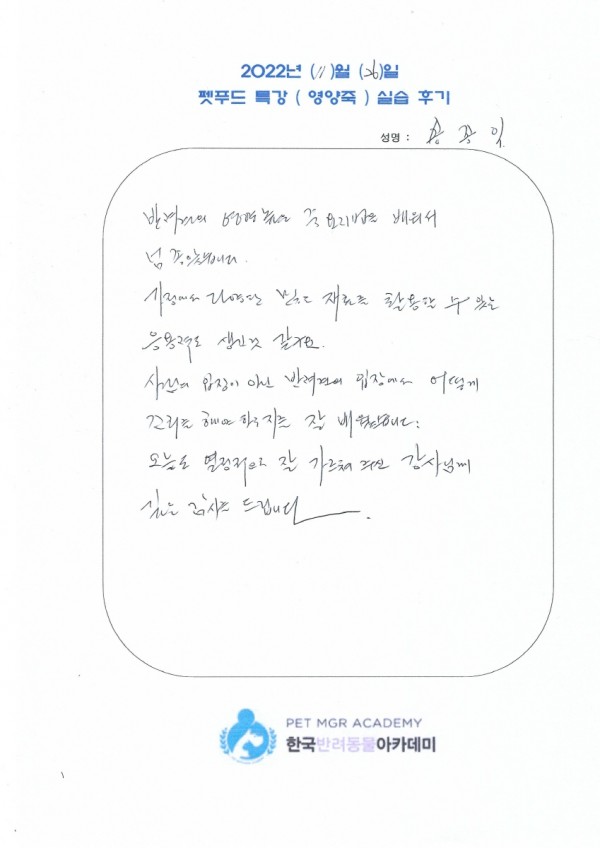 2022년 (11)월 (26)일
펫푸드 특강 ( 영양죽 ) 실습 후기
성명 :
반려견의 영양 죽 요리법을 배워서
넘 좋았습니다.
시장에서 다양한 재료를 활용할 수 있는
응용력도 생긴것 같아요.
사람의 입장이 아닌 반려견의 입장에서 어떻게
해야 하는지를 잘 배웠습니다.
오늘도 열정적으로 잘 가르쳐 주신 강사님께
깊은 감사를 드립니다.
PET MGR ACADEMY
한국반려동물아카데미